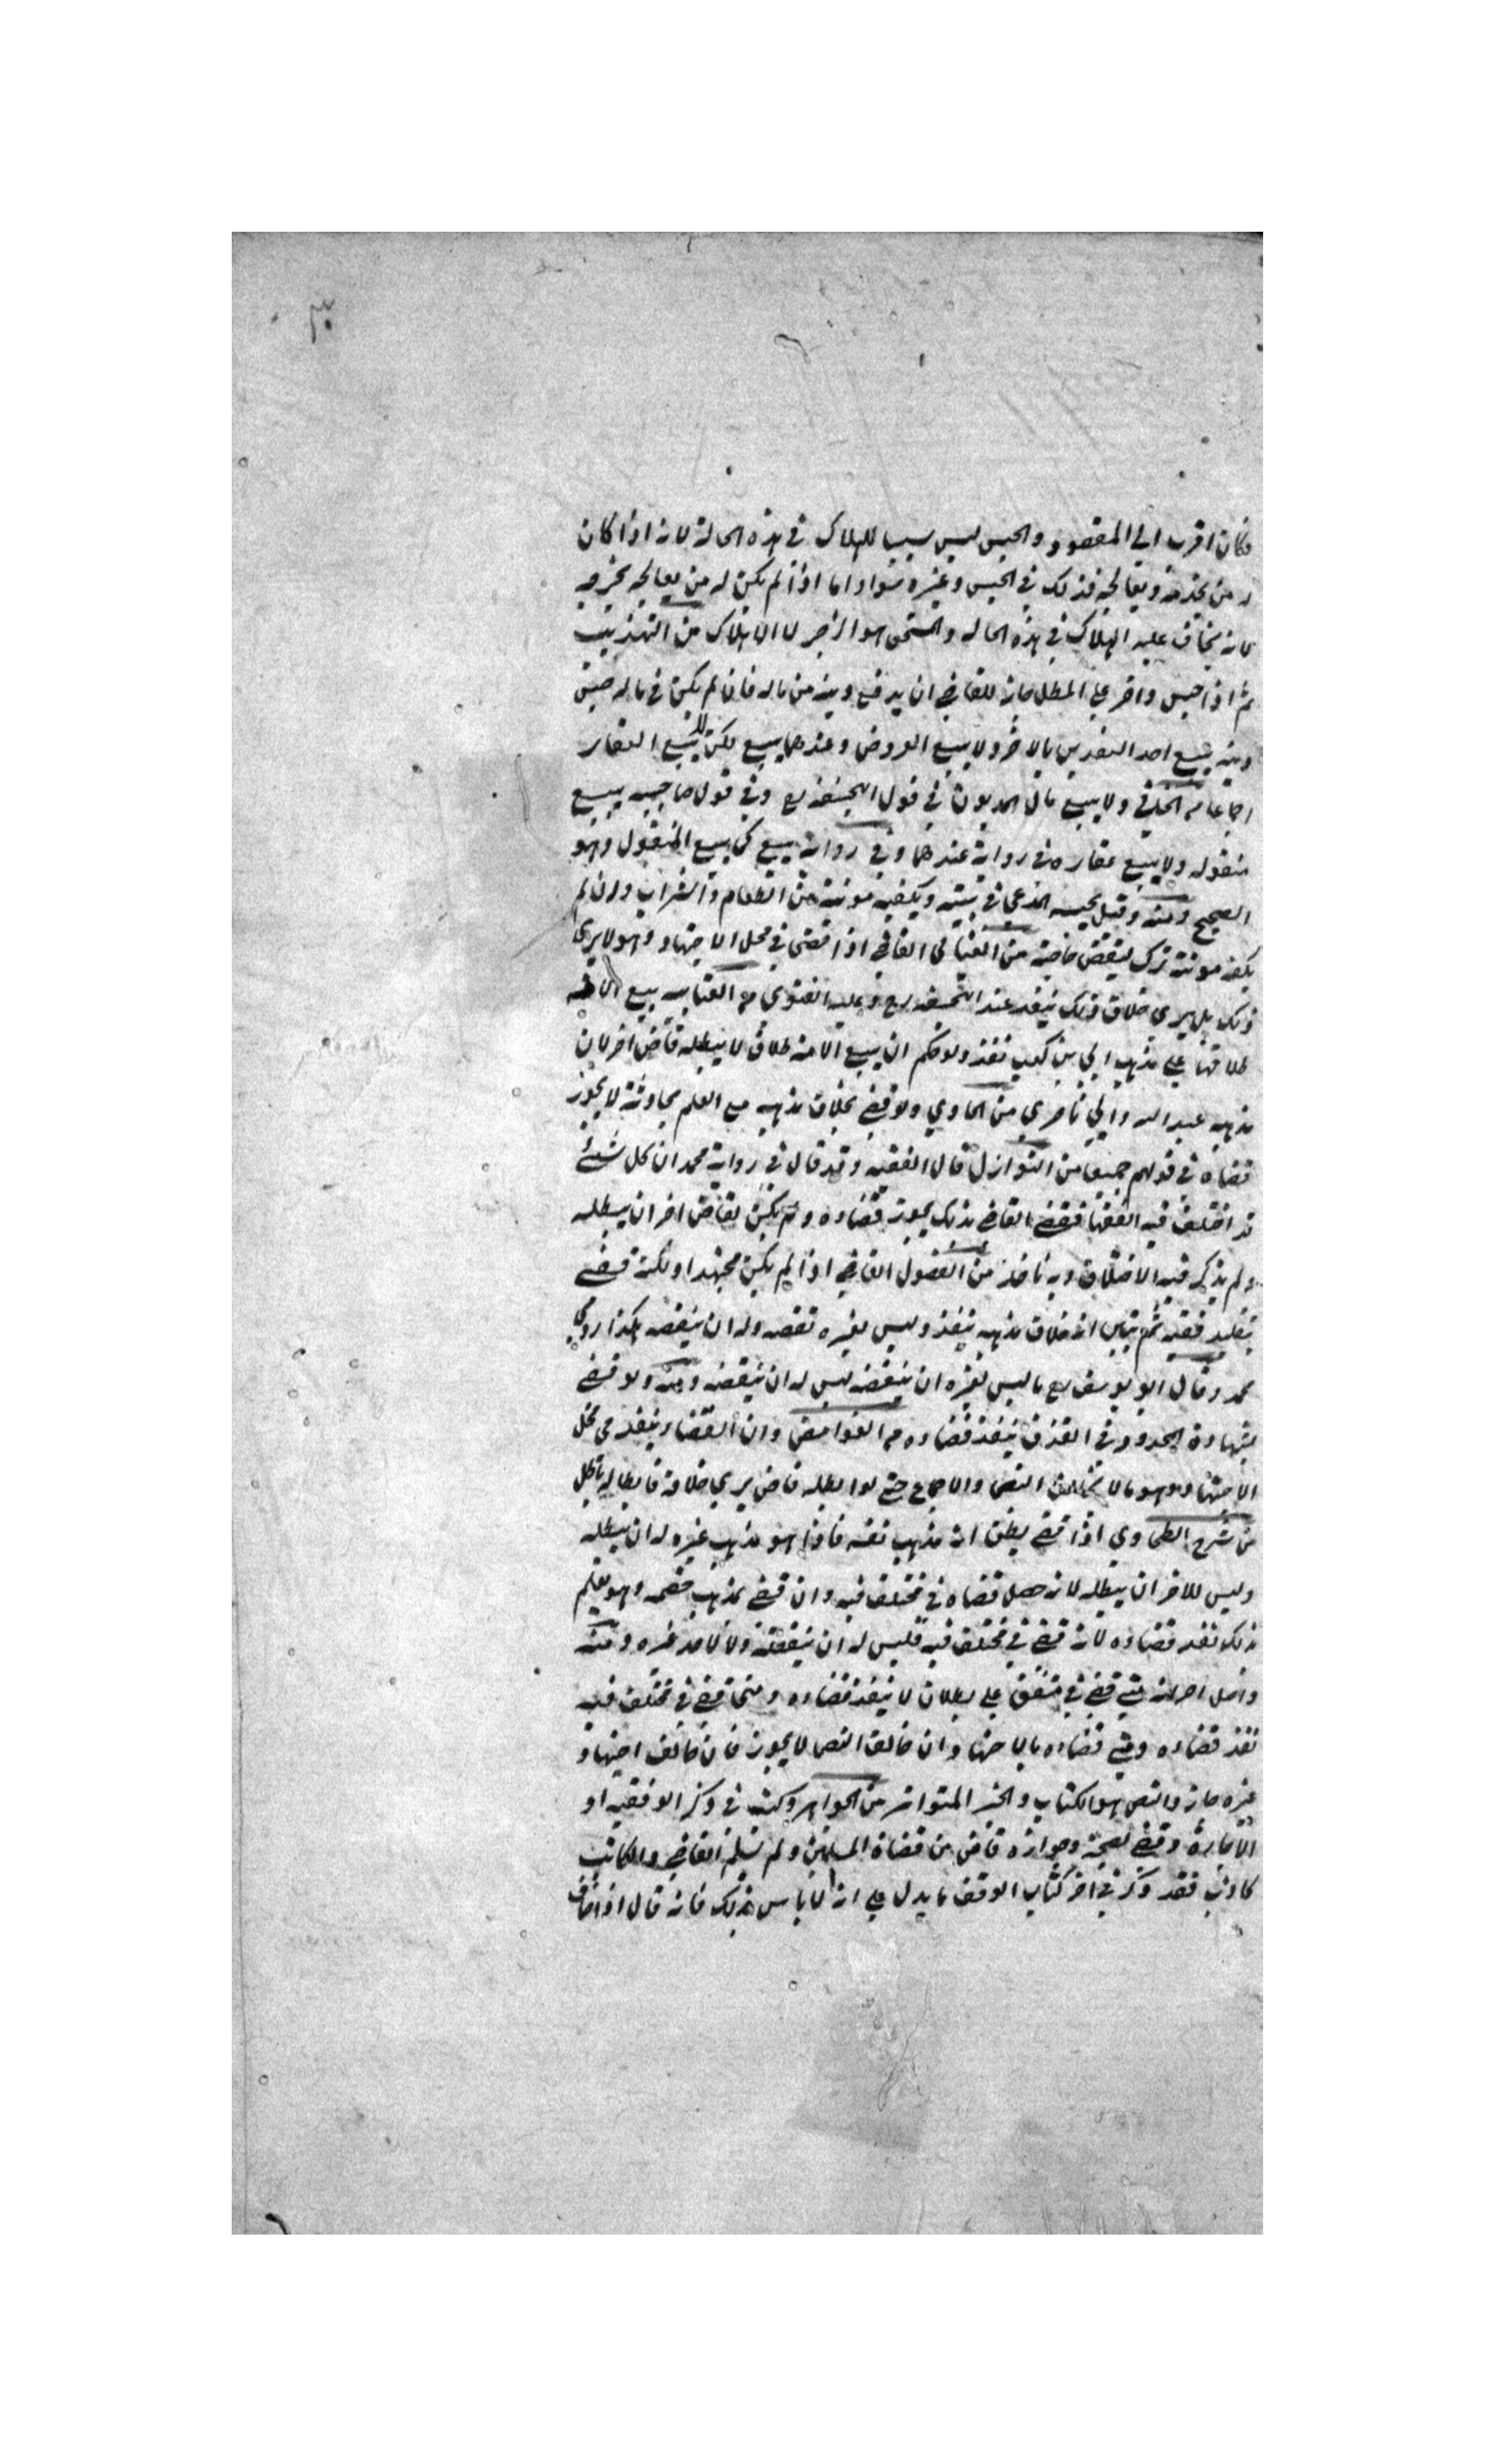 ٣٠
فكان اقرب الي المقصود والحبس ليس بسبب للهلاك في هذه الحالة لانه اذا كان
له من يخدمه ويعالجه فذلك في الحبس وغيره سواء اما اذا لم يكن له من يعالجه يخرج
لانه يخاف عليه الهلاك في هذه الحاله والمستحق هو الزجر لا الاهلاك من التهذيب
ثم اذا حبس واصر علي المطل جاز للقاضي ان يدفع دينه من ماله فان لم يكن في ماله جنس
دينه يبيع احد النقدين بالاخر ولا يبيع العروض وعندهما يبيع لكن لا يبيع العقار
ولا يبيع مال المديون في قول ابي حنيفة رح وفي قول صاحبيه يبيع
منقوله ولا يبيع عقاره في رواية عندهما وفي رواية يبيع كما يبيع المنقول وهو
الصحيح ومنه وقيل يحبسه المدعي في بيته ويكفيه مونته من الطعام والشراب وان لم
يكفه مونته ترك من القاضي اذا قضى في محل الاجتهاد وهو لا يرى
ذلك بل يرى خلاف ذلك ينفذ عند ابي حنيفة رح وعليه الفتوى بيع الامة
طلاقها علي مذهب ابي بن كعب نفذ ولو حكم ان بيع الامة طلاق لا يبطله قاض اخر لان
مذهب عبد الله وابي من الحاوي ولو قضي بخلاف مذهبه مع العلم لا يجوز
قضاه في قولهم جميعا من النوازل قال الفقيه وقد قال في رواية محمد ان كل شئ
قد اختلف فيه الفقها فقضي القاضي بذلك يجوز قضاوه ولم يكن لقاض اخر ان يبطله
ولم يذكر فيه الاختلاف وبه ناخذ من الفصول القاضي اذا لم يكن مجتهدا ولكنه قضي
بتقليد فقيه ثم تبين انه خلاف مذهبه ينفذ وليس لغيره نقضه وله ان ينقضه هكذا روي
محمد وقال ابو يوسف رح ما ليس لغيره ان ينقضه ليس له ان ينقضه ومنه ولو قضي
بشهادة المحدود في القذف ينفذ قضاوه من الغوامض وان القضاء ينفذ في محل
الاجتهاد وهو ما لا يخالف النص والاجماع حتي لو ابطله قاض يري خلافه فابطاله باطل
من شرح الطحاوي اذا قضي يظن انه مذهب نفسه فاذا هو مذهب غيره له ان يبطله
وليس للاخر ان يبطله لانه حصل قضاه في مختلف فيه وان قضي بمذهب خصمه وهو يعلم
بذلك نفذ قضاوه لانه قضي في مختلف فيه فليس له ان ينقضه ولا لاحد غيره ومنه
واصل اخر انه متي قضي في متفق علي بطلان لا ينفذ قضاوه ومتي قضي في مختلف فيه
نفذ قضاوه ومتي قضاوه بالاجتهاد وان خالف النص لا يجوز فان خالف اجتهاد
غيره جاز والنص هو الكتاب والخبر المتواتر من الجواهر وكتب في ذكر الوقفية او
الاجارة وقضي بصحته وجوازه قاض من قضاة المسلمين ولم يسلم القاضي والكاتب
كاذب فقد ذكر في اخر كتاب الوقف ما يدل علي انه لا باس بذلك فانه قال اذا خاف